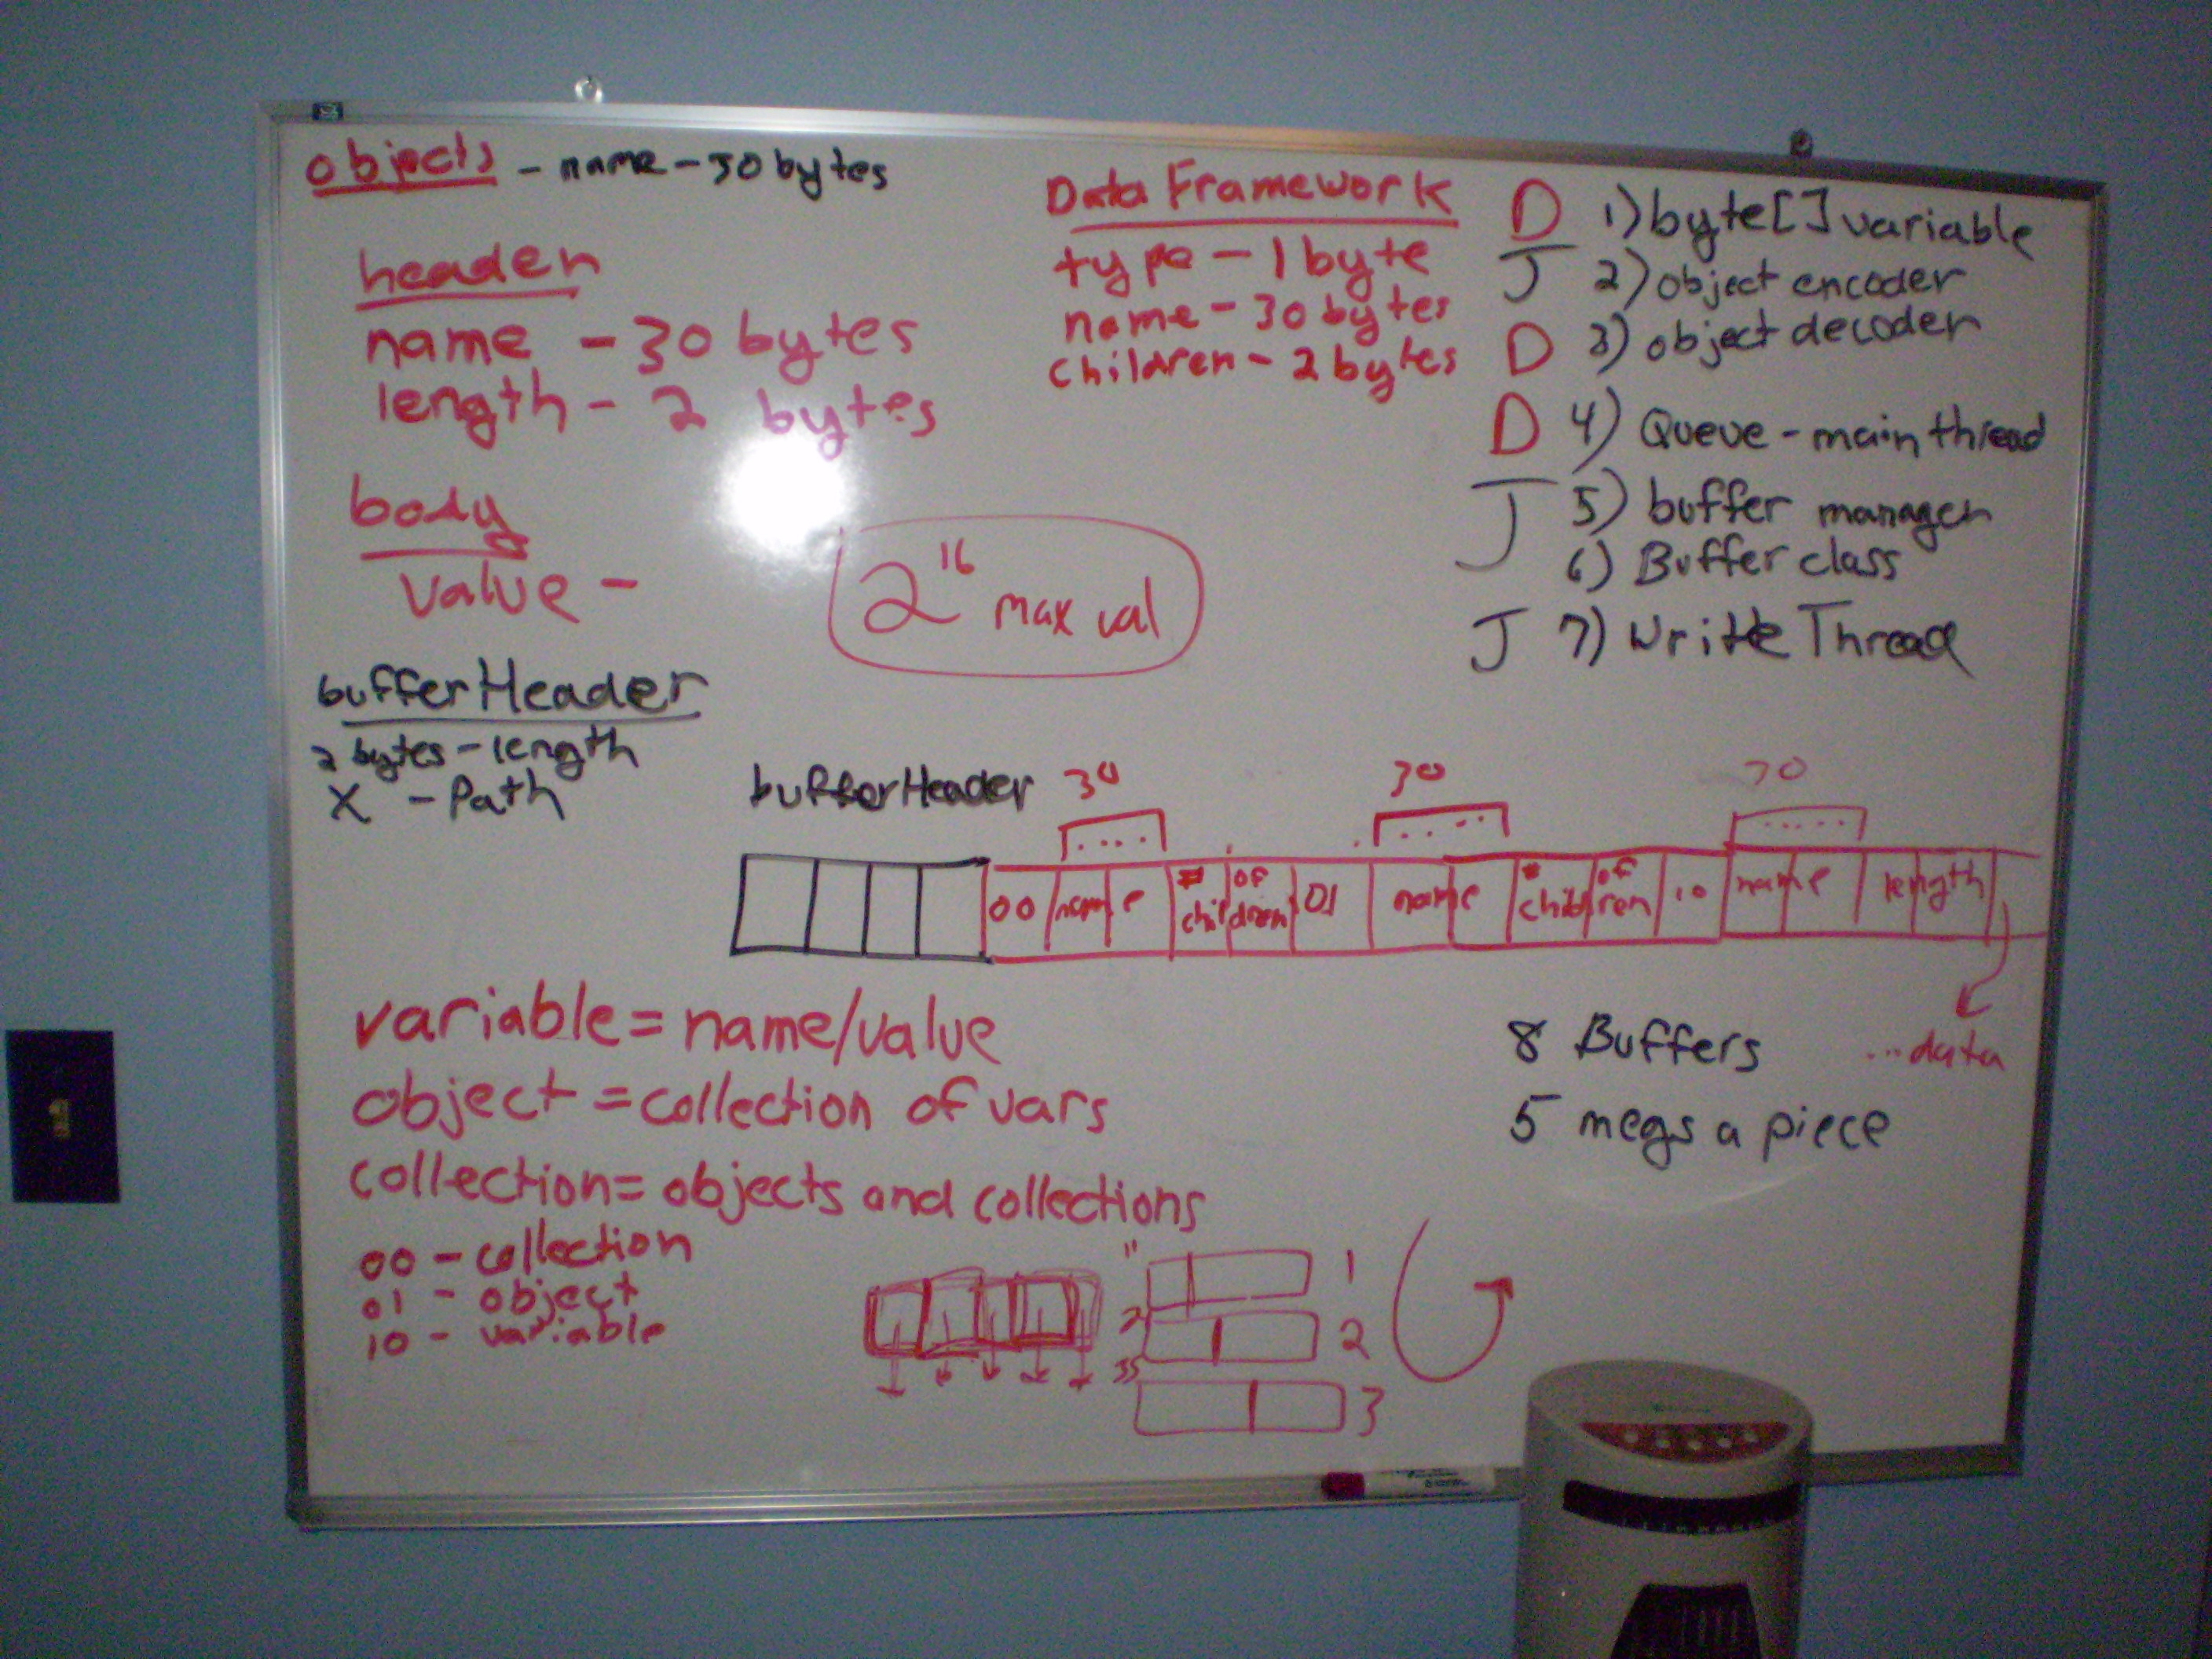 objects - name - 30 bytes
header
name - 30 bytes
length - 2 bytes
body
value -
2^16 max val
Data Framework
type - 1 byte
name - 30 bytes
children - 2 bytes
D 1) byte[] variable
J 2) object encoder
D 3) object decoder
D 4) Queue - main thread
J 5) buffer manager
6) Buffer class
J 7) Write Thread
bufferHeader
2 bytes - length
X - Path
bufferHeader 30 30 30
00 name # of children 01 name # of children 10 name length
...data
variable = name/value
object = collection of vars
collection = objects and collections
00 - collection
01 - object
10 - variable
8 Buffers
5 megs a piece
1
2 2
3